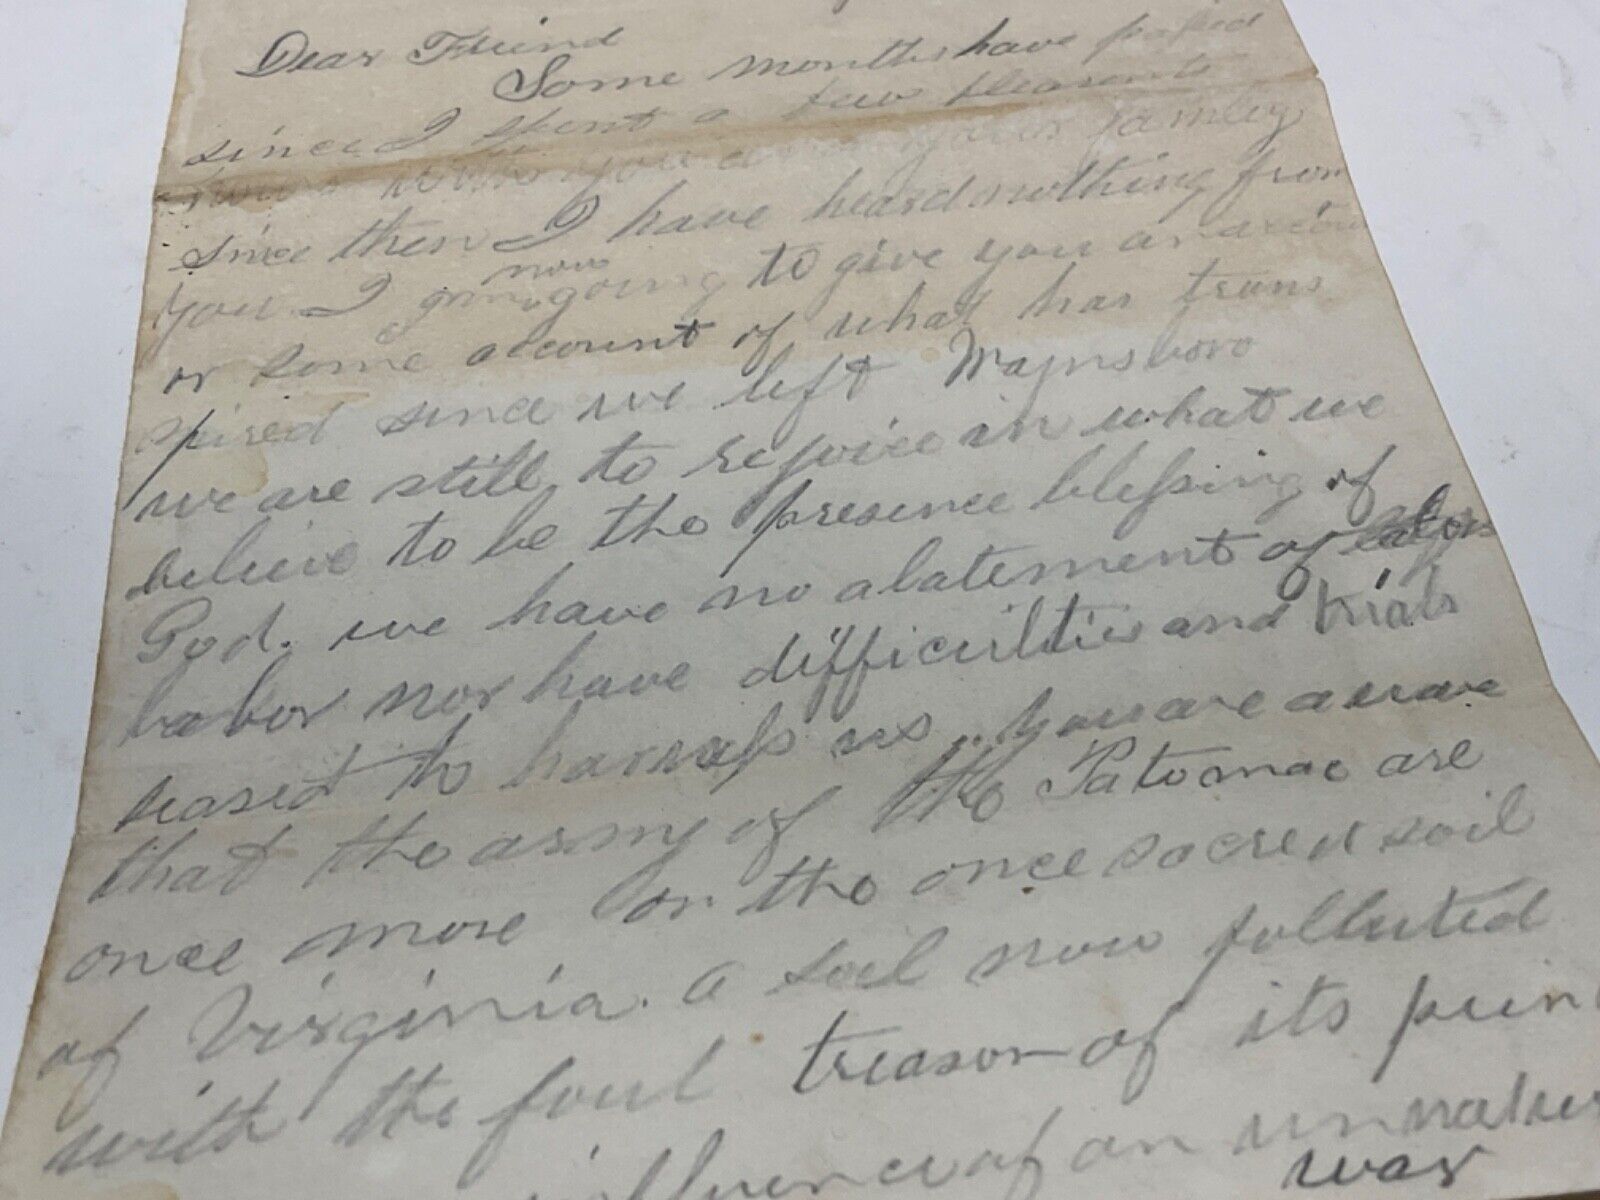 Dear Friend
Some months have passed
since I spent a few pleasent
with you your familey
since then I have heard nothing from
you I now going to give you an
or some account of what has trans
pired since we left Waynsboro
we are still to rejoice in what we
believe to be the presence blessing of
God. we have no abatement of
labor nor have difficulties and trials
ceased to harrass us. you are aware
that the army of the Patomac are
once more on the once sacred soil
of Virginia. a soil now polluted
with the foul treason of its
influence of an
war